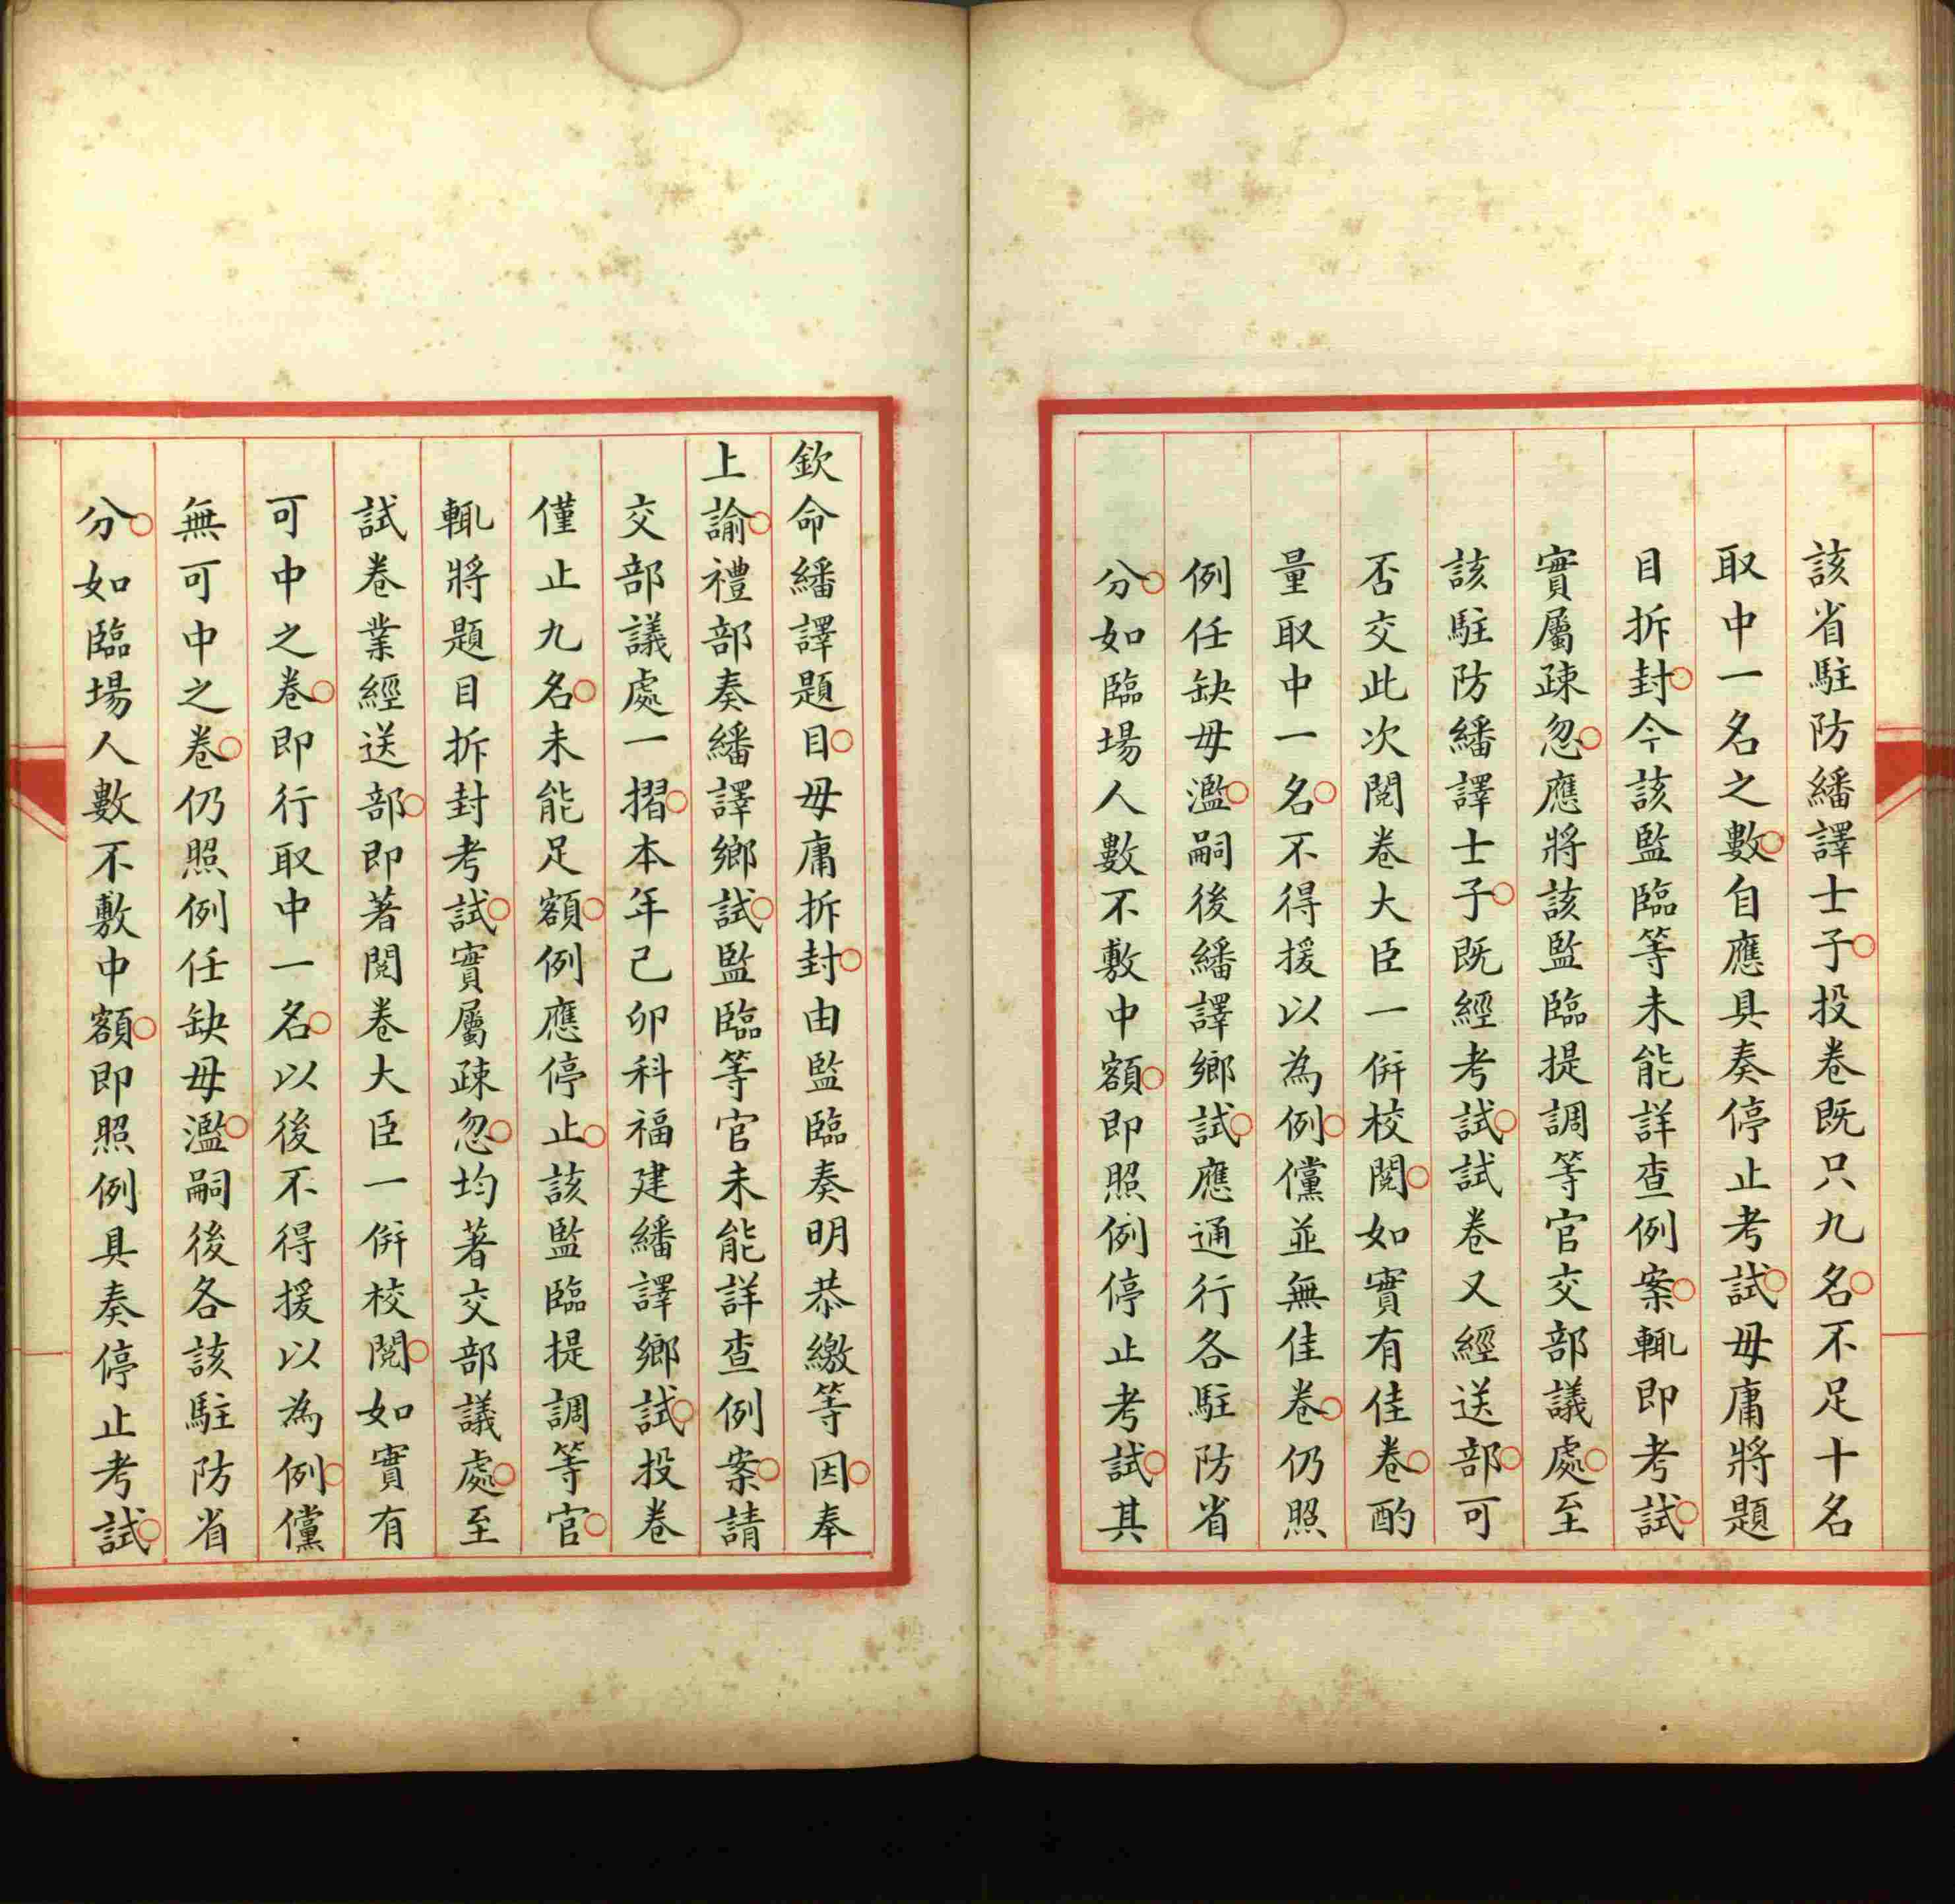 該省駐防繙譯士子○投卷既只九名○不足十名
取中一名之數○自應具奏停止考試○毋庸將題
目拆封○今該監臨等未能詳查例案○輒即考試○
實屬疎忽○應將該監臨提調等官交部議處○至
該駐防繙譯士子○既經考試○試卷又經送部○可
否交此次閱卷大臣一併校閱○如實有佳卷○酌
量取中一名○不得援以為例○儻並無佳卷○仍照
例任缺毋濫○嗣後繙譯鄉試○應通行各駐防省
分○如臨場人數不敷中額○即照例停止考試○其
欽命繙譯題目○毋庸拆封○由監臨奏明恭繳等因○奉
上諭○禮部奏繙譯鄉試○監臨等官未能詳查例案○請
交部議處一摺○本年己卯科福建繙譯鄉試○投卷
僅止九名○未能足額○例應停止○該監臨提調等官○
輒將題目拆封考試○實屬疎忽○均著交部議處○至
試卷業經送部○即著閱卷大臣一併校閱○如實有
可中之卷○即行取中一名○以後不得援以為例○儻
無可中之卷○仍照例任缺毋濫○嗣後各該駐防省
分○如臨場人數不敷中額○即照例具奏停止考試○